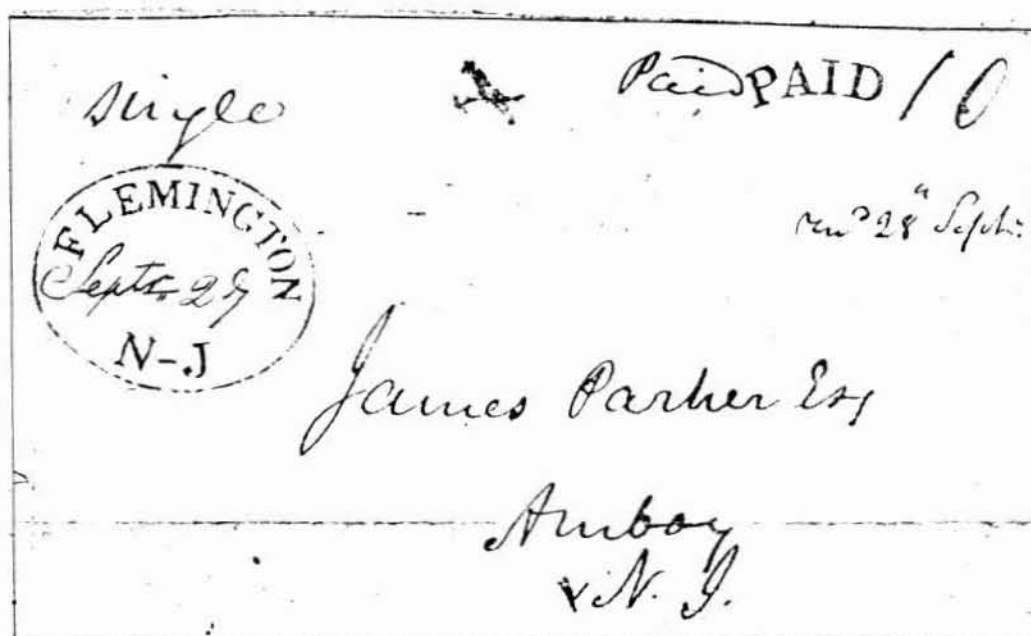 single
Paid PAID 10
FLEMINGTON
Septr. 27
N-J
28" Sept:
James Parker Esq
Amboy
N. J.